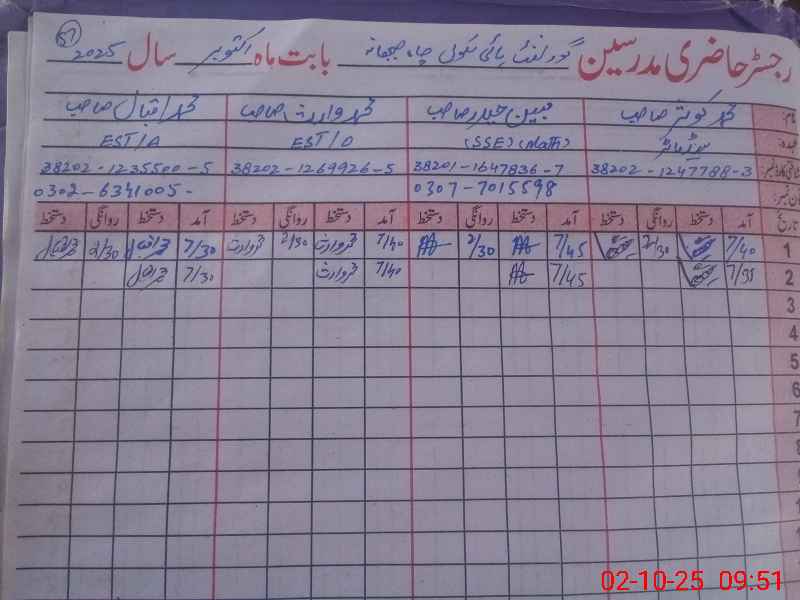 رجسٹر حاضری مدرسین گورنمنٹ ہائی سکول چاہ بابت ماہ اکتوبر سال 2025
51
نام: محمد کوثر صاحب حیدر صاحب محمد وارث صاحب محمد اقبال صاحب
عہدہ: ہیڈ ماسٹر (SSE) (Math) EST/O EST/A
38202-1247788-3 38201-1647836-7 38202-1269926-5 38202-1235500-5
0307-7015598 0302-6341005-
تاریخ آمد دستخط روانگی دستخط آمد دستخط روانگی دستخط آمد دستخط روانگی دستخط آمد دستخط روانگی دستخط
1 7/40 2/30 7/45 2/30 7/40 محمد وارث 2/30 محمد وارث 7/30 محمد اقبال 2/30 محمد اقبال
2 7/35 7/45 7/40 محمد وارث 7/30 محمد اقبال
3
4
5
6
7
8
02-10-25 09:51